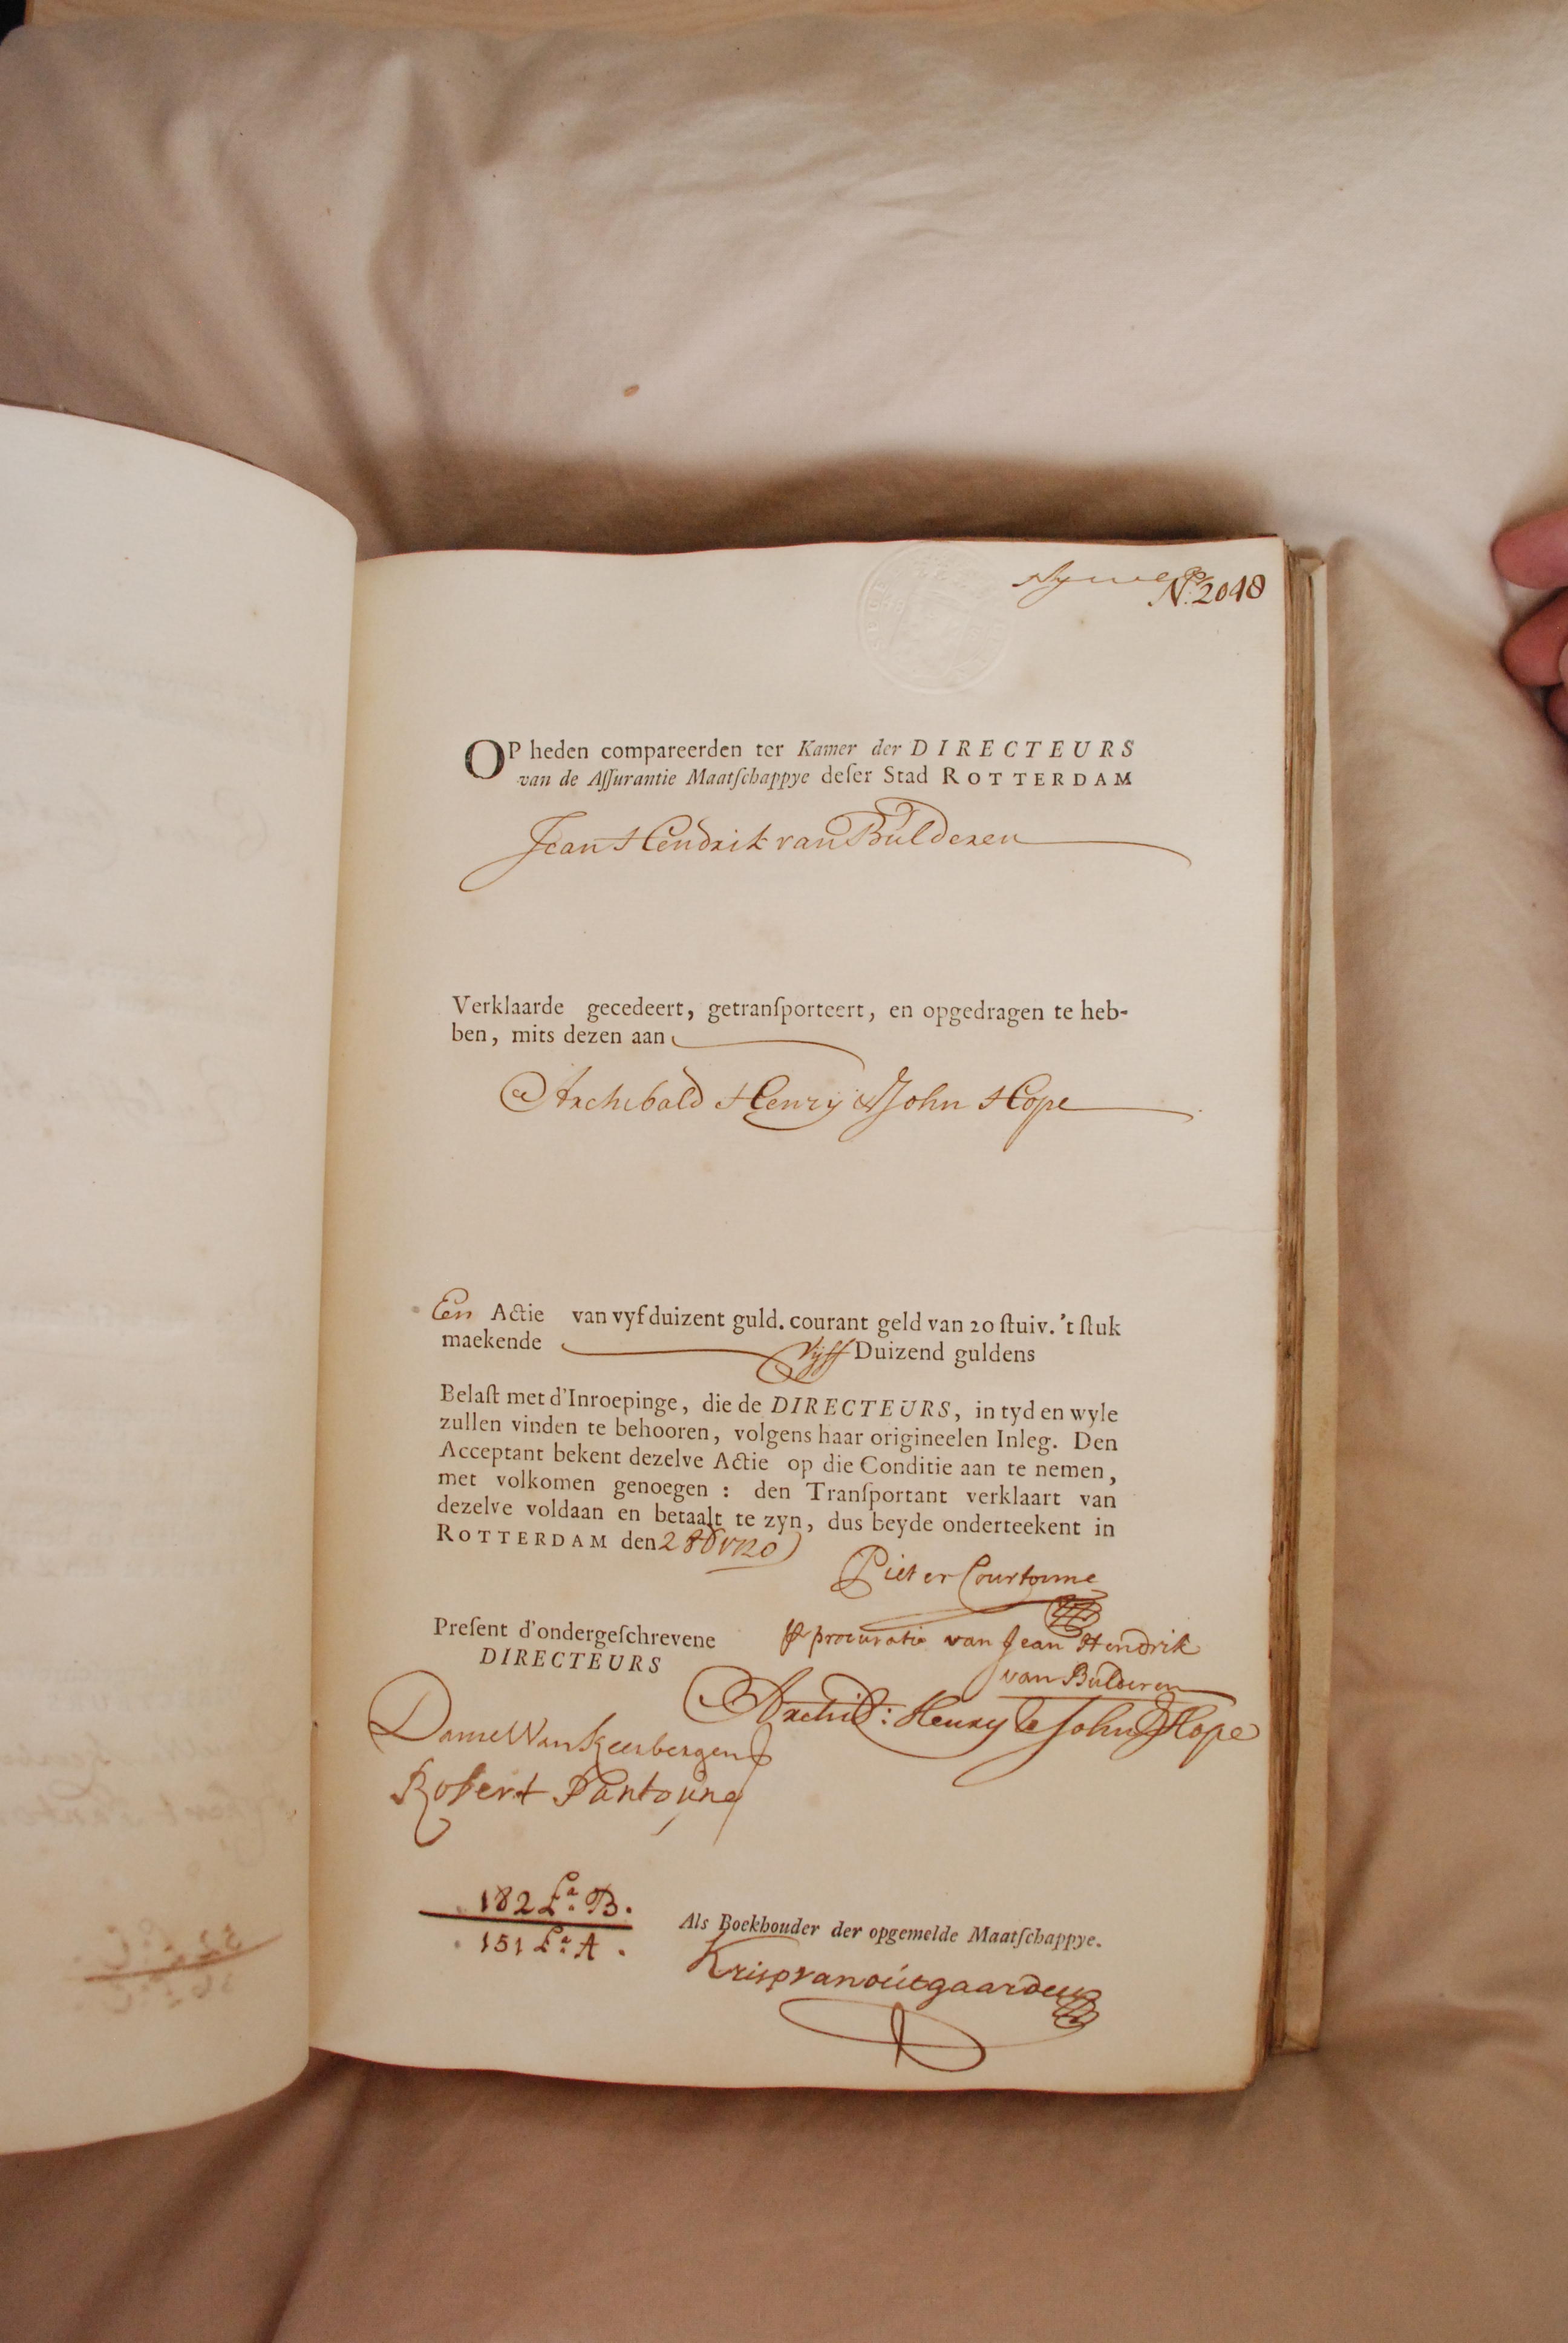 No. 2048
OP heden compareerden ter Kamer der DIRECTEURS
van de Aſſurantie Maatſchappye deſer Stad ROTTERDAM
Jean Hendrik van Bulderen
Verklaarde gecedeert, getranſporteert, en opgedragen te heb-
ben, mits dezen aan
Archibald Henry & John Hope
Een Actie van vyf duizent guld. courant geld van 20 ſtuiv. 't ſtuk
maekende Vijff Duizend guldens
Belaſt met d'Inroepinge, die de DIRECTEURS, in tyd en wyle
zullen vinden te behooren, volgens haar origineelen Inleg. Den
Acceptant bekent dezelve Actie op die Conditie aan te nemen,
met volkomen genoegen : den Tranſportant verklaart van
dezelve voldaan en betaalt te zyn, dus beyde onderteekent in
ROTTERDAM den 2 1720
Pieter Courtonne
procuratie van Jean Hendrik
van Bulderen
Preſent d'ondergeſchrevene
DIRECTEURS
Archib: Henry & John Hope
Daniel Van Keerbergen
Robert Pantoune
182 La. B.
151 La. A.
Als Boekhouder der opgemelde Maatſchappye.
Krisp van outgaarden